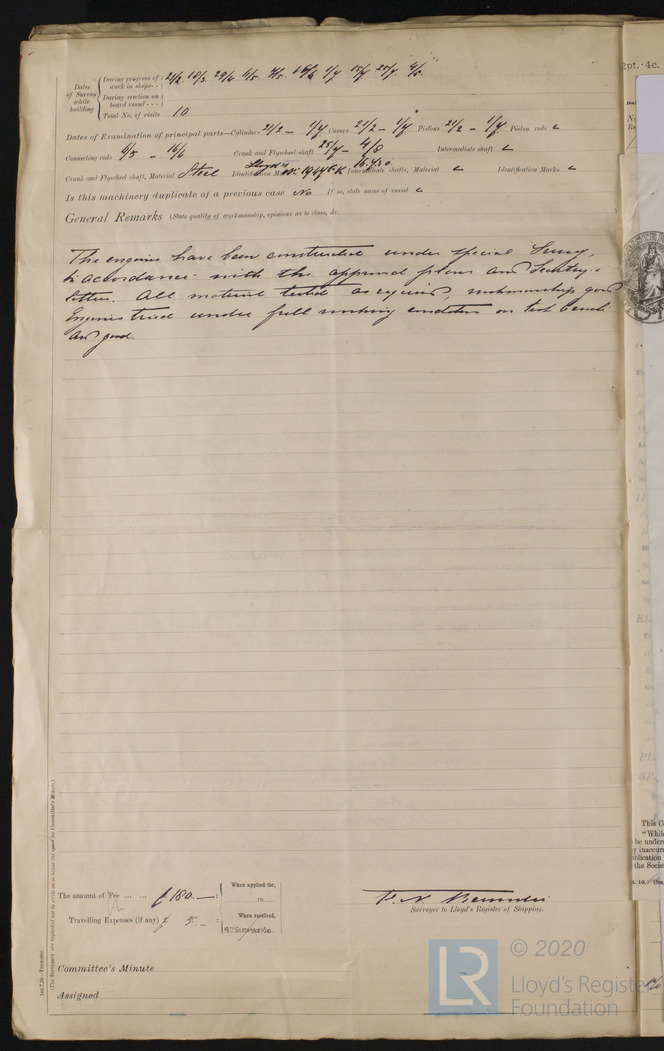 Rpt. 4c.
Dates of Survey while building
During progress of work in shops - - 21/2. 18/3. 29/4. 7/5. 1/7. 15/7. 25/7. 4/8.
During erection on board vessel - - -
Total No. of visits 10
Dates of Examination of principal parts—Cylinders 21/2 – 1/7 Covers 21/2 – 1/7 Pistons 21/2 – 1/7 Piston rods
Connecting rods 9/5 – 16/6 Crank and Flywheel shaft 25/7 – 4/8 Intermediate shaft
Crank and Flywheel shaft, Material Steel Identification Mark Lloyd's No 1964 E.K. 16.7.30 Intermediate shafts, Material Identification Marks
Is this machinery duplicate of a previous case No If so, state name of vessel
General Remarks (State quality of workmanship, opinions as to class, &c.
The engines have been constructed under Special Survey,
in accordance with the approved plans and Secretary's
letters. All material tested as required, workmanship good
Engines tried under full working condition on test bench
and good.
The amount of Fee ... ... £ 180. — : When applied for,
19
Travelling Expenses (if any) £ 5. – : When received,
Surveyor to Lloyd's Register of Shipping.
Committee's Minute
Assigned
(The Surveyors are requested not to write on or below the space for Committee's Minute.)
© 2020
Lloyd's Register
Foundation
LR
This C
"Whil
be under
inaccur
ublication
the Socie